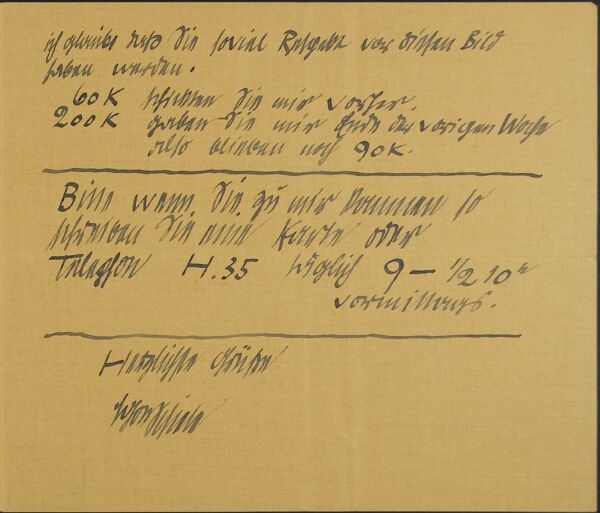 ich glaube daß Sie soviel Respekt vor diesem Bild
haben werden.
60 K schickten Sie mir vorher,
200 K gaben Sie mir Ende der vorigen Woche
also blieben noch 90 K.
Bitte wenn Sie zu mir kommen so
schreiben Sie eine Karte oder
Telephon H.35 täglich 9 – ½ 10 h
vormittags.
Herzlichste Grüße
Egon Schiele